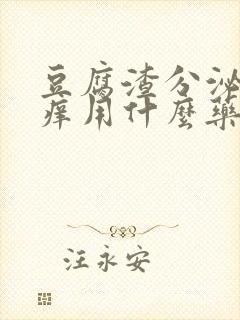 豆腐渣分泌
痒用什麼藥
汪永安